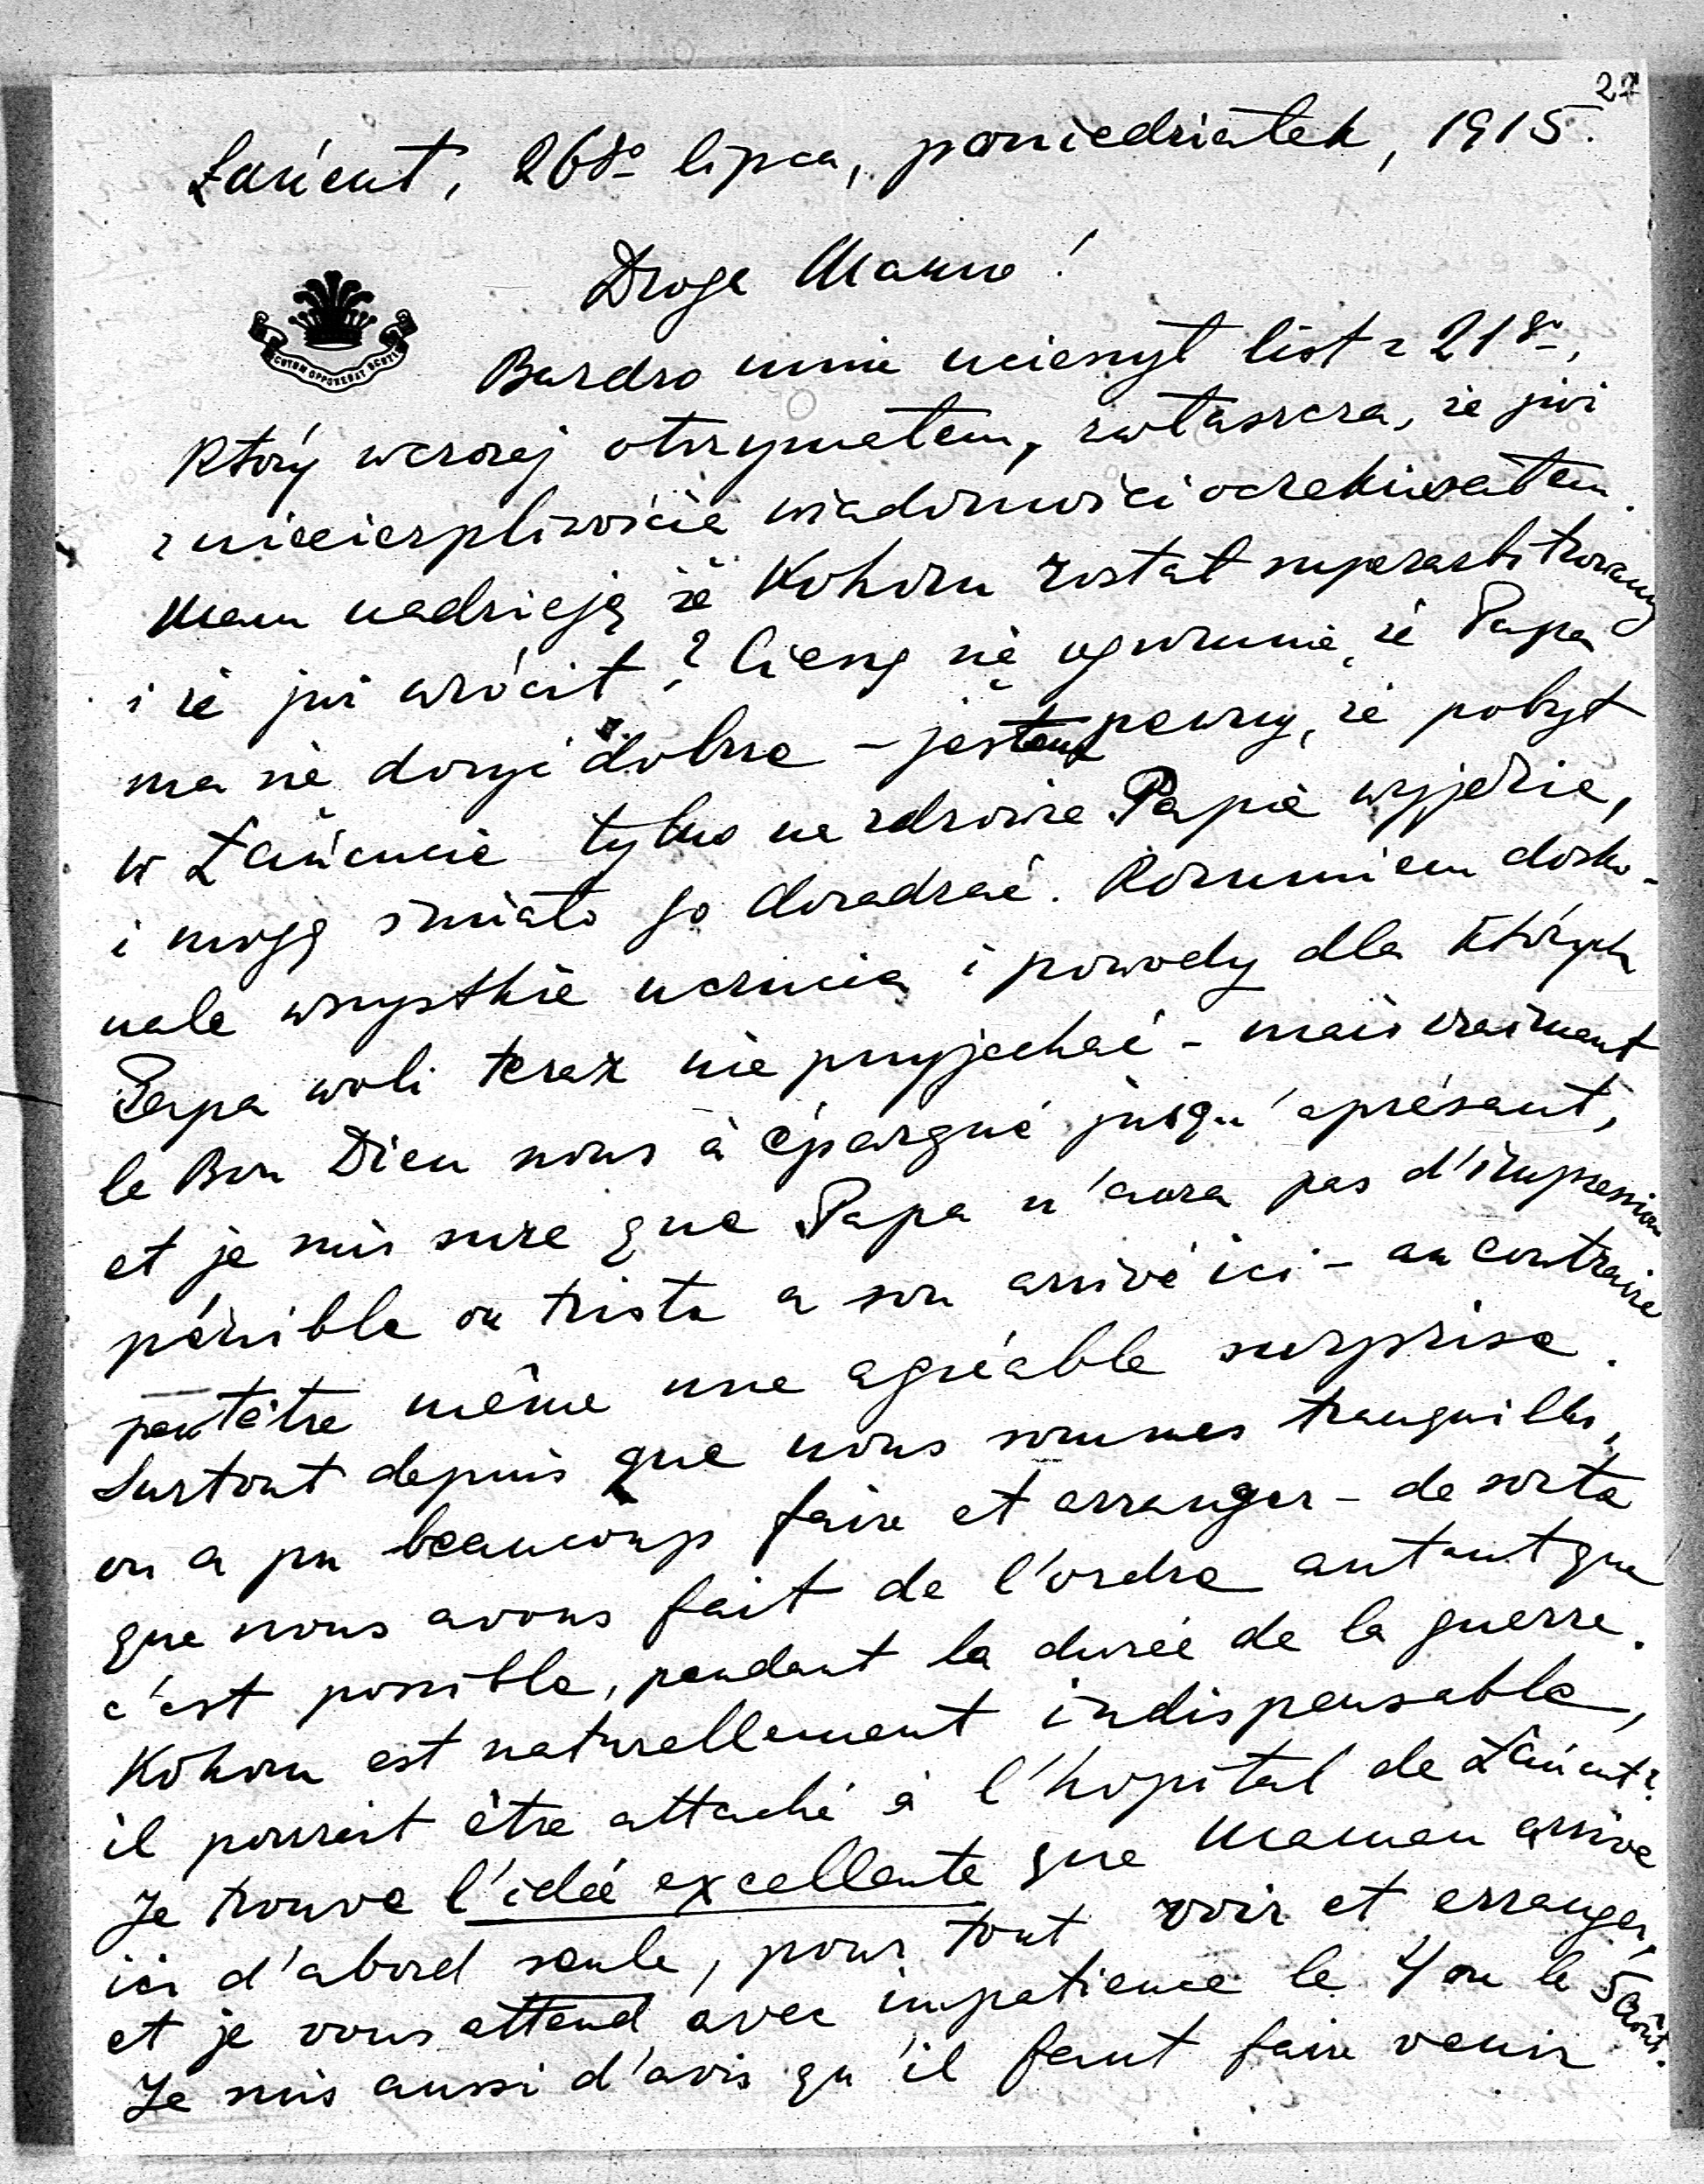 27
Łańcut, 26go lipca, poniedziałek, 1915.
Droga Mamo!
SCUTUM OPPONEBAT SCUTIS
Bardzo mnie ucieszył list z 21go,
który wczoraj otrzymałem, zwłaszcza, że już
z niecierpliwością wiadomości oczekiwałem.
Mam nadzieję że Kohorn został superarbitrowany
i że już wrócił? Cieszę się ogromnie, że Papa
ma się dosyć dobrze – jestem pewny, że pobyt
w Łańcucie tylko na zdrowie Papie wyjdzie,
i mogę śmiało go doradzać. Rozumiem dosko-
nale wszystkie uczucia i powody dla których
Papa woli teraz nie przyjechać – mais vraiment
le Bon Dieu nous à épargné jusqu'aprésent,
et je suis sure que Papa n'aura pas d'impression
pénible ou triste a son arrivé ici – au contraire
peutêtre même une agréable surprise.
Surtout depuis que nous sommes tranquilles,
on a pu beaucoup faire et arranger – de sorte
que nous avons fait de l'ordre autant que
c'est possible, pendant la durée de la guerre.
Kohorn est naturellement indispensable,
il pourrait être attaché à l'hopital de Łańcut?
Je trouve l'idée excellente que Maman arrive
ici d'abord seule, pour tout voir et arranger,
et je vous attend avec impatience le 4 ou le 5 août.
Je suis aussi d'avis qu'il faut faire venir